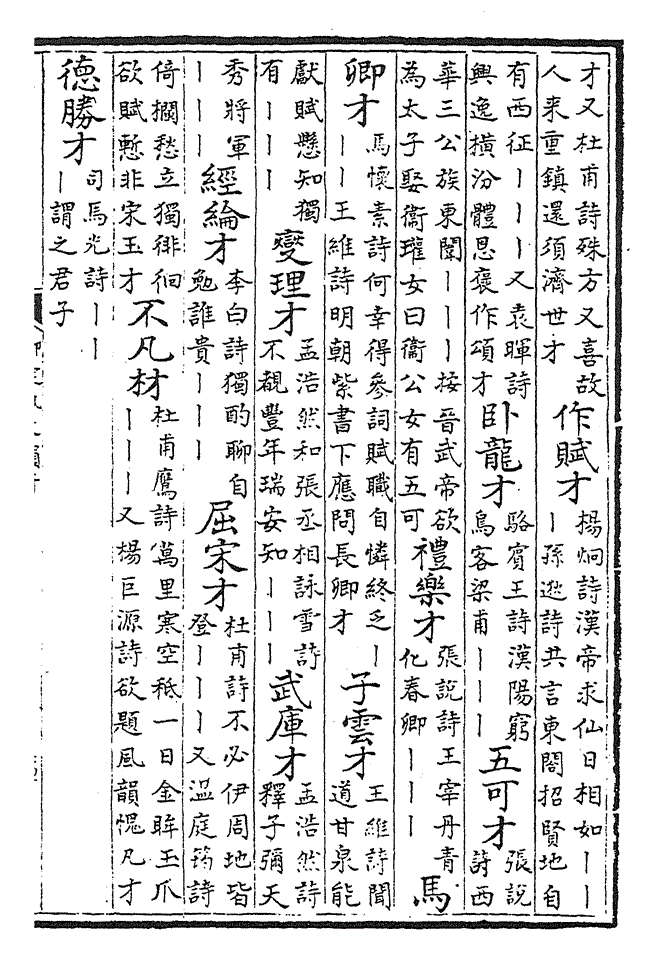 才又杜甫詩殊方又喜故
人来重鎮還須濟世才
作賦才
楊炯詩漢帝求仙日相如丨丨
丨孫逖詩共言東閣招賢地自
有西征丨丨丨又袁暉詩
興逸橫汾體思褒作頌才
卧龍才
駱賓王詩漢陽窮
鳥客梁甫丨丨丨
五可才
張説
詩西
華三公族東閨丨丨丨按晉武帝欲
為太子娶衞瓘女曰衞公女有五可
禮樂才
張説詩王宰丹青
化春卿丨丨丨
馬
卿才
馬懷素詩何幸得參詞賦職自憐終乏丨
丨丨王維詩明朝紫書下應問長卿才
子雲才
王維詩聞
道甘泉能
獻賦懸知獨
有丨丨丨
爕理才
孟浩然和張丞相詠雪詩
不覩豐年瑞安知丨丨丨
武庫才
孟浩然詩
釋子彌天
秀將軍
丨丨丨
經綸才
李白詩獨酌聊自
勉誰貴丨丨丨
屈宋才
杜甫詩不必伊周地皆
登丨丨丨又温庭筠詩
倚攔愁立獨徘徊
欲賦慙非宋玉才
不凡材
杜甫鷹詩萬里寒空秪一日金眸玉爪
丨丨丨又楊巨源詩欲題風韻愧凡才
德勝才
司馬光詩丨丨
丨謂之君子